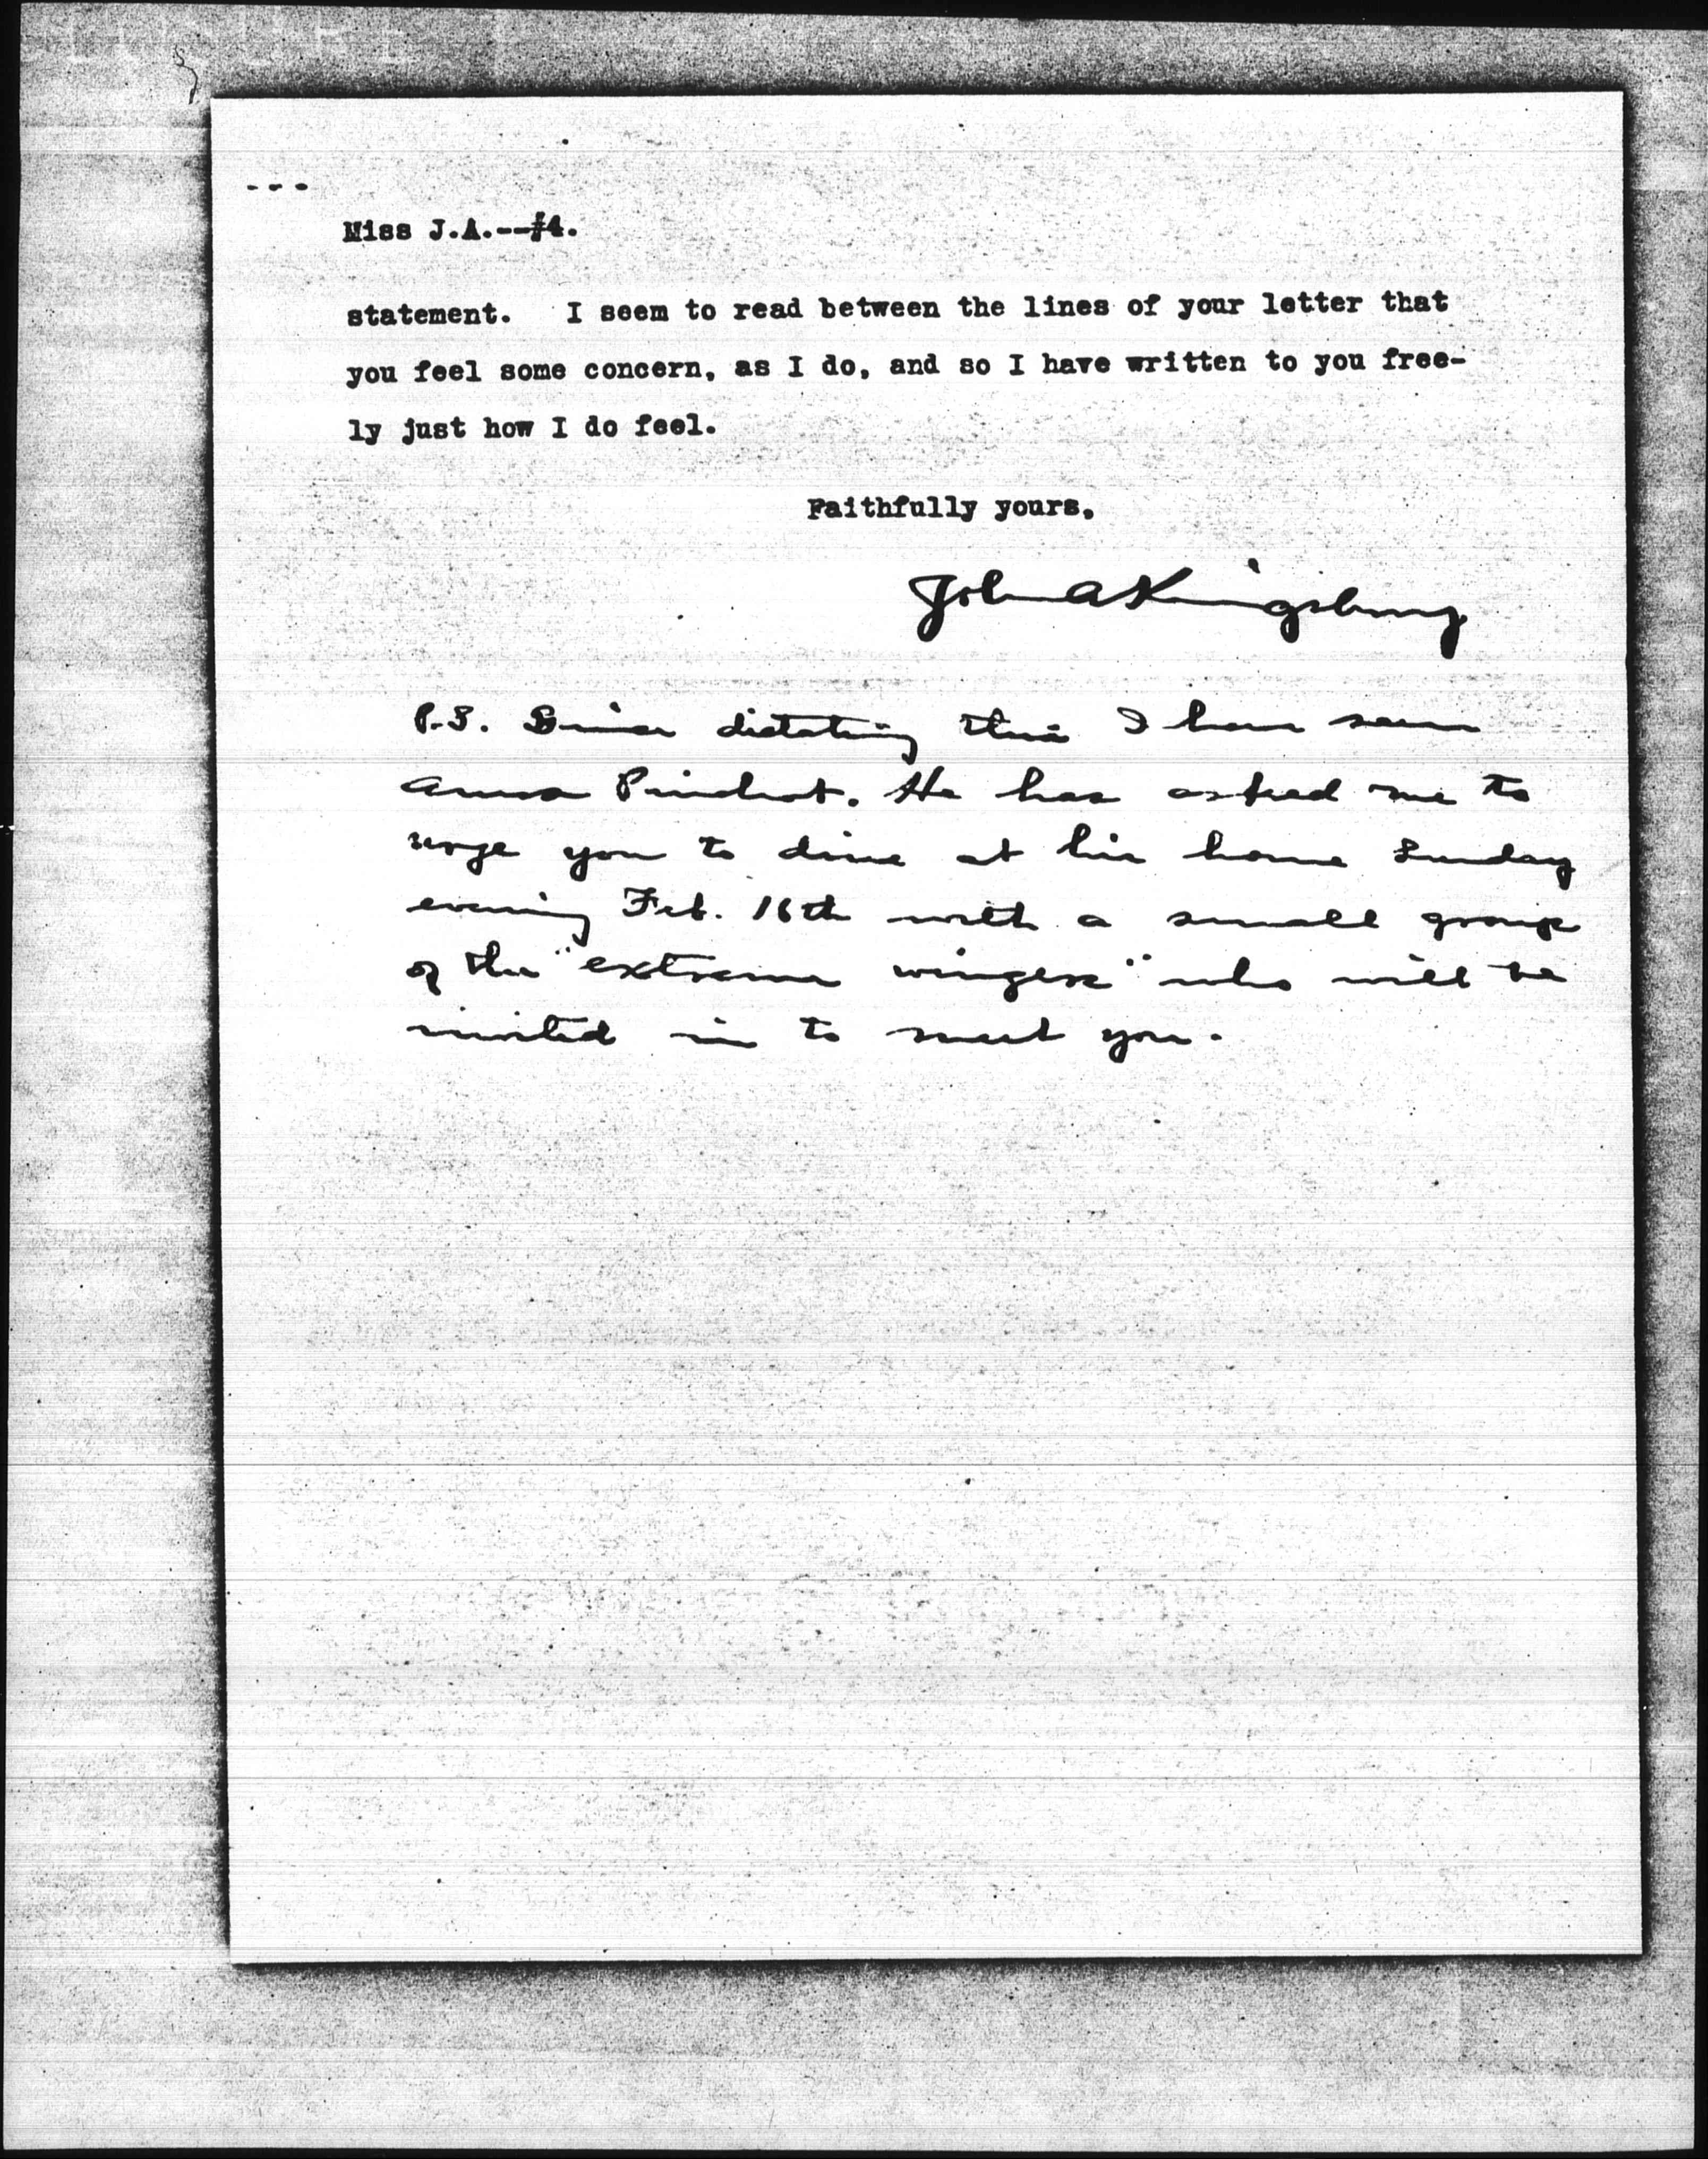 ---
Miss J.A.--#4.
statement. I seem to read between the lines of your letter that
you feel some concern, as I do, and so I have written to you free-
ly just how I do feel.
Faithfully yours,
John A Kingsbury
P.S. Since dictating this I have seen
Amos Pinchot. He has asked me to
urge you to dine at his home Sunday
evening Feb. 16th with a small group
of the "extreme wingers" who will be
invited in to meet you.